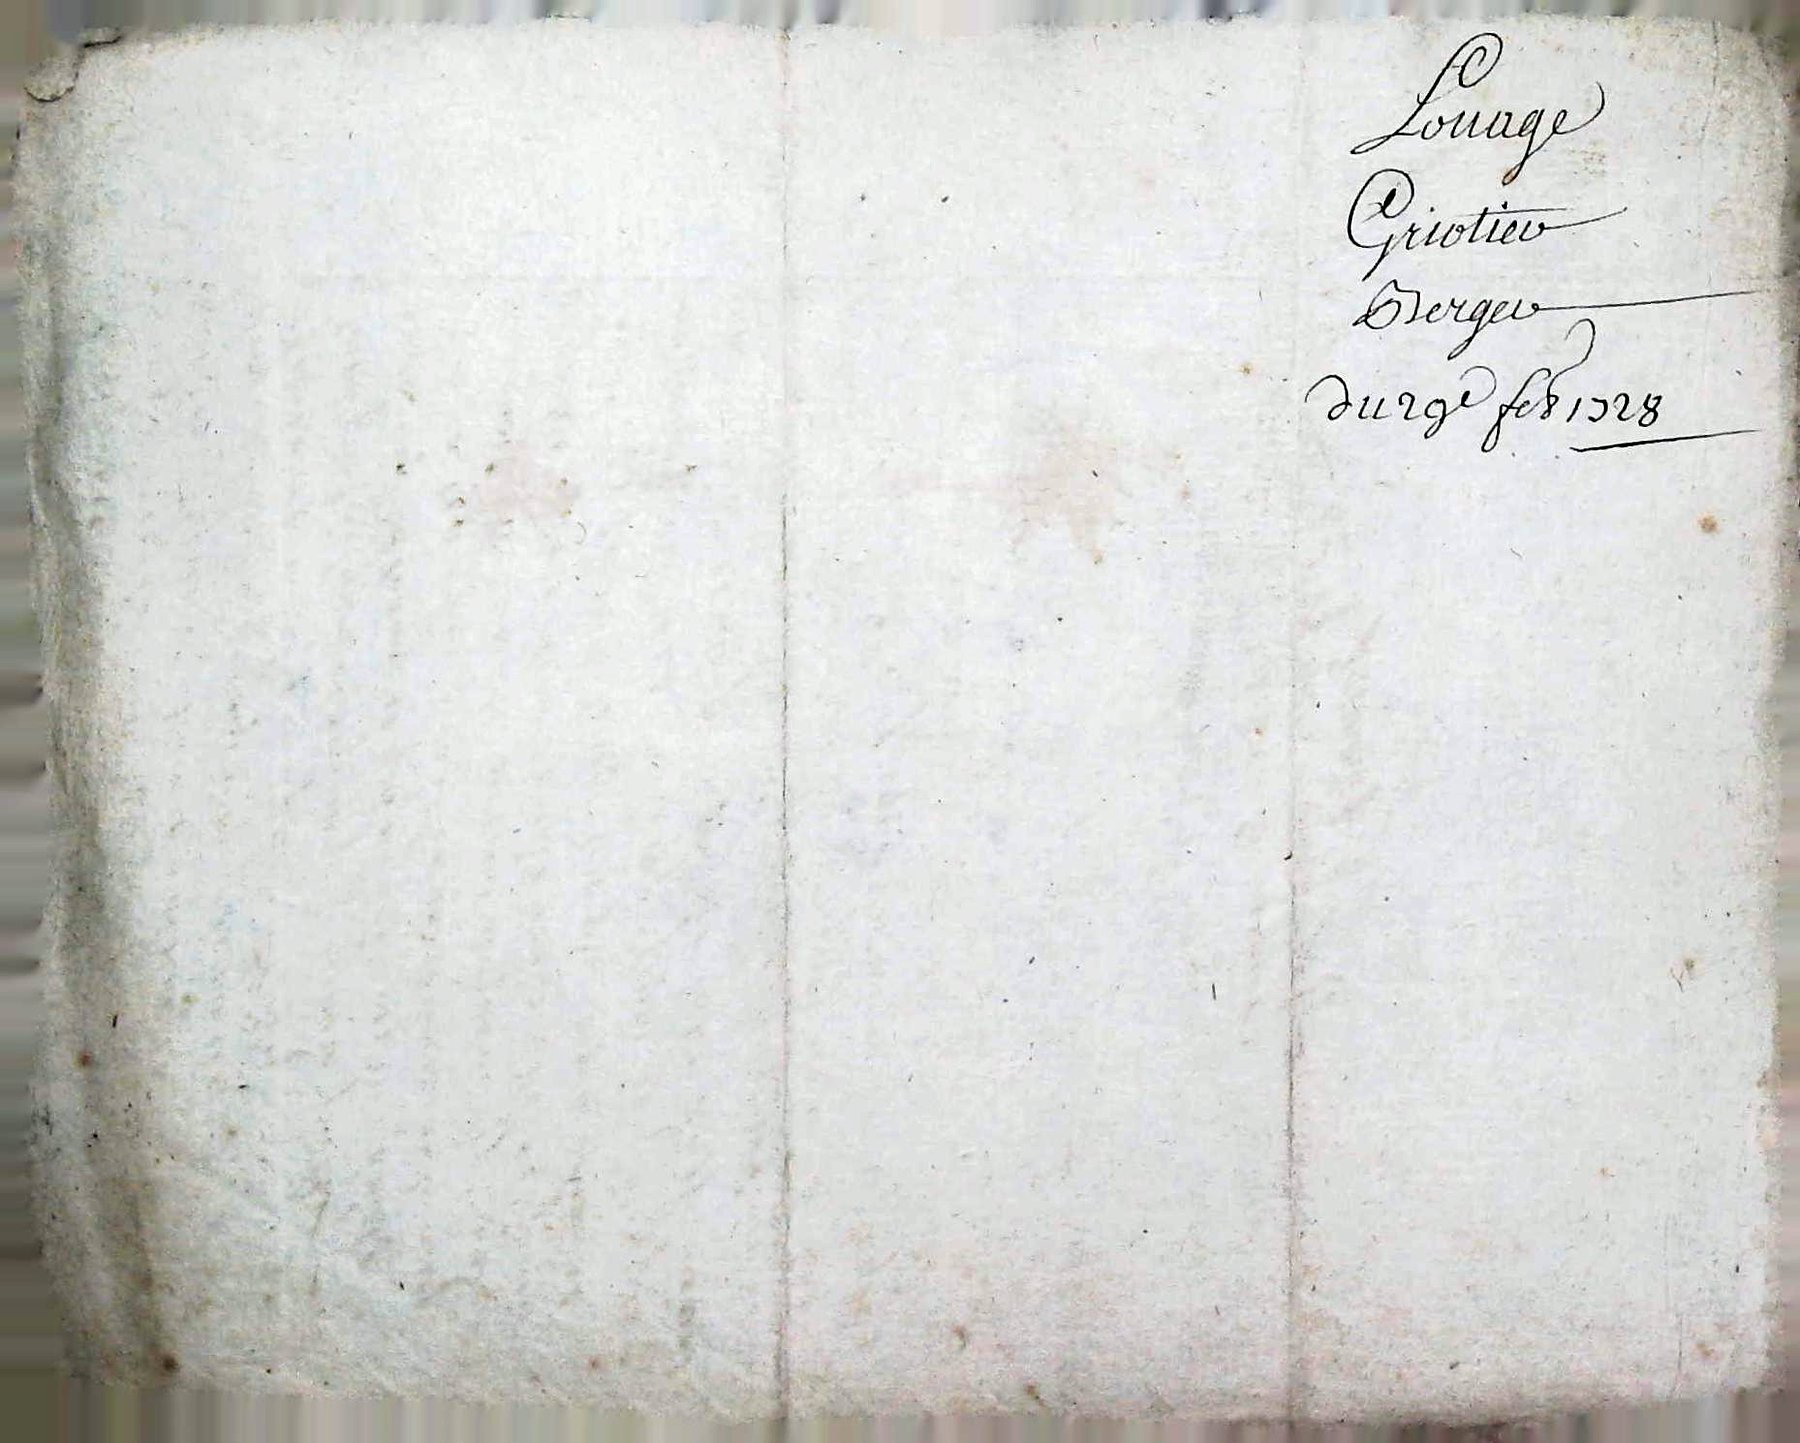 Louage
Griotier
Berger
du 29e feb 1728